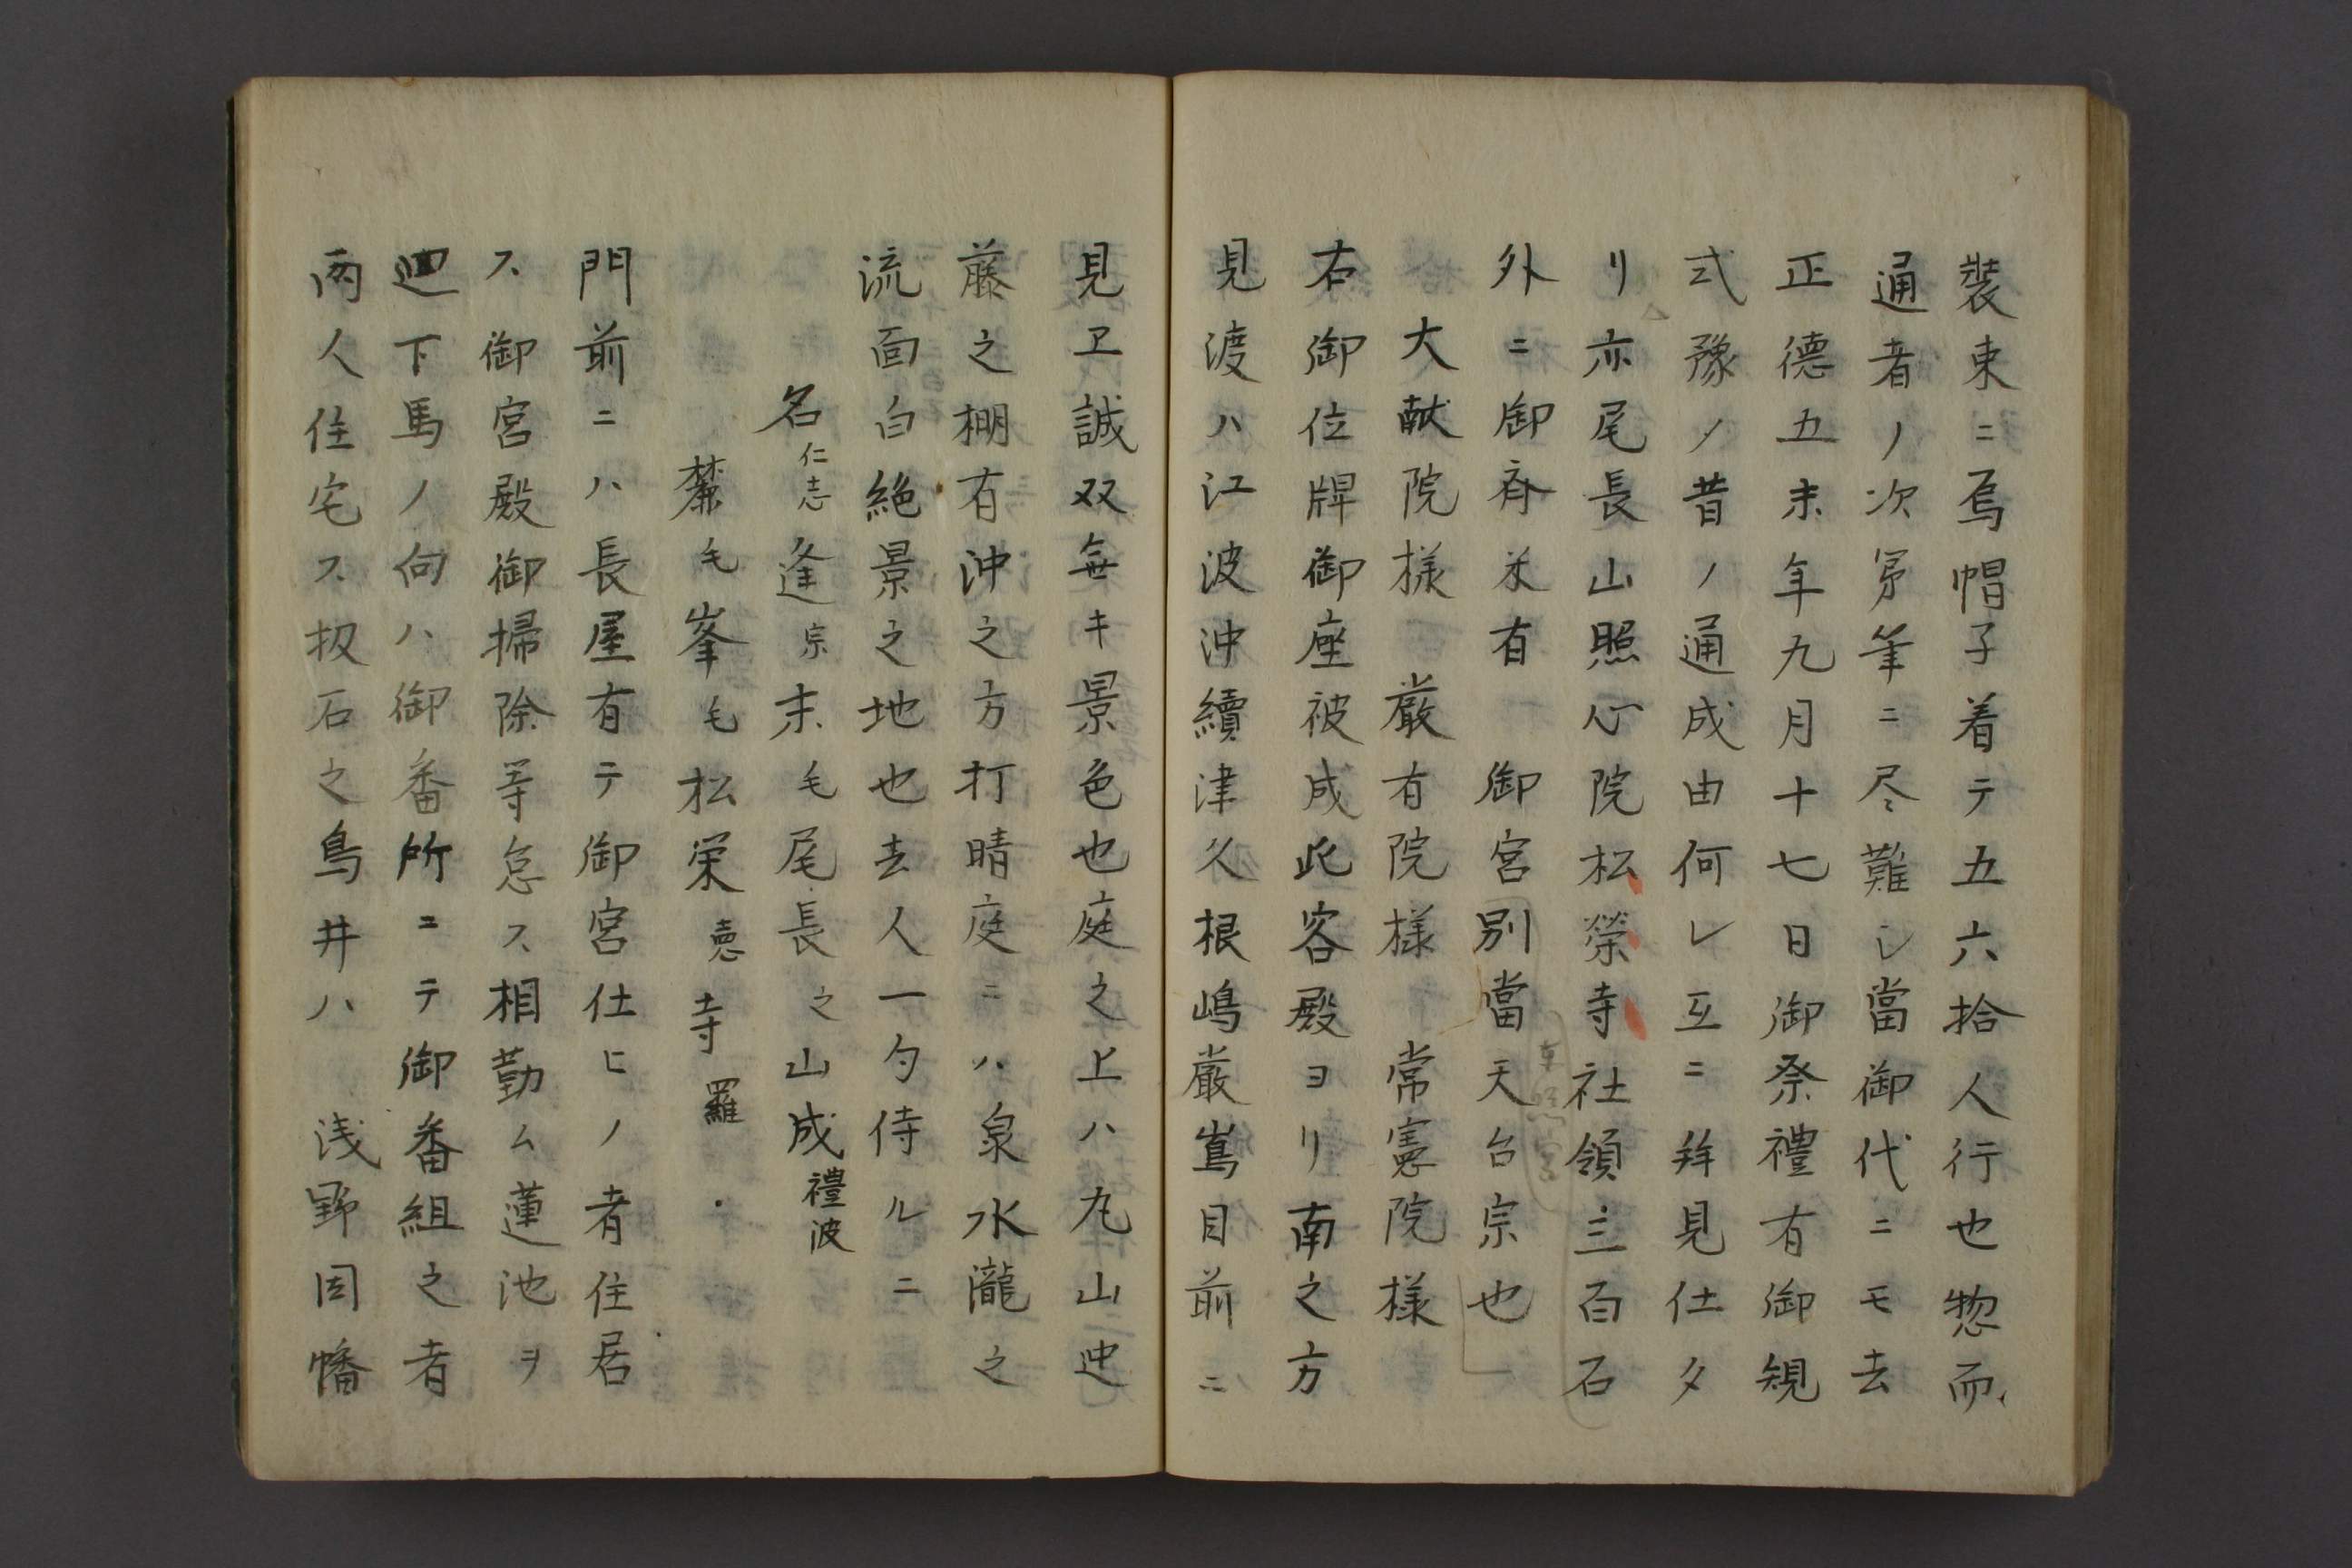 装束ニ烏帽子着テ五六拾人行也惣而
通者ノ次第筆ニ尽難シ當御代ニモ去
正德五未年九月十七日御祭禮有御規
式豫ノ昔ノ通成由何レ互ニ拜見仕タ
リ亦尾長山照心院松榮寺社領三百石
外ニ御斉米有　御宮別當天台宗也
大猷院様　厳有院様　常憲院様
右御位牌御座被成此客殿ヨリ南之方
見渡ハ江波沖續津久根嶋厳嶌目前ニ
見ヱ誠双無キ景色也庭之上ハ丸山迚
藤之棚有沖之方打晴庭ニハ泉水瀧之
流面白絶景之地也去人一勺侍ルニ
名仁志逢宗末毛尾長之山成禮波
麓毛峯毛松栄寺羅
門前ニハ長屋有テ御宮仕ヒノ者住居
ス御宮殿御掃除等怠ス相勤ム蓮池ヲ
廻下馬ノ向ハ御番所ニテ御番組之者
両人住宅ス扨石之鳥井ハ　浅野因幡